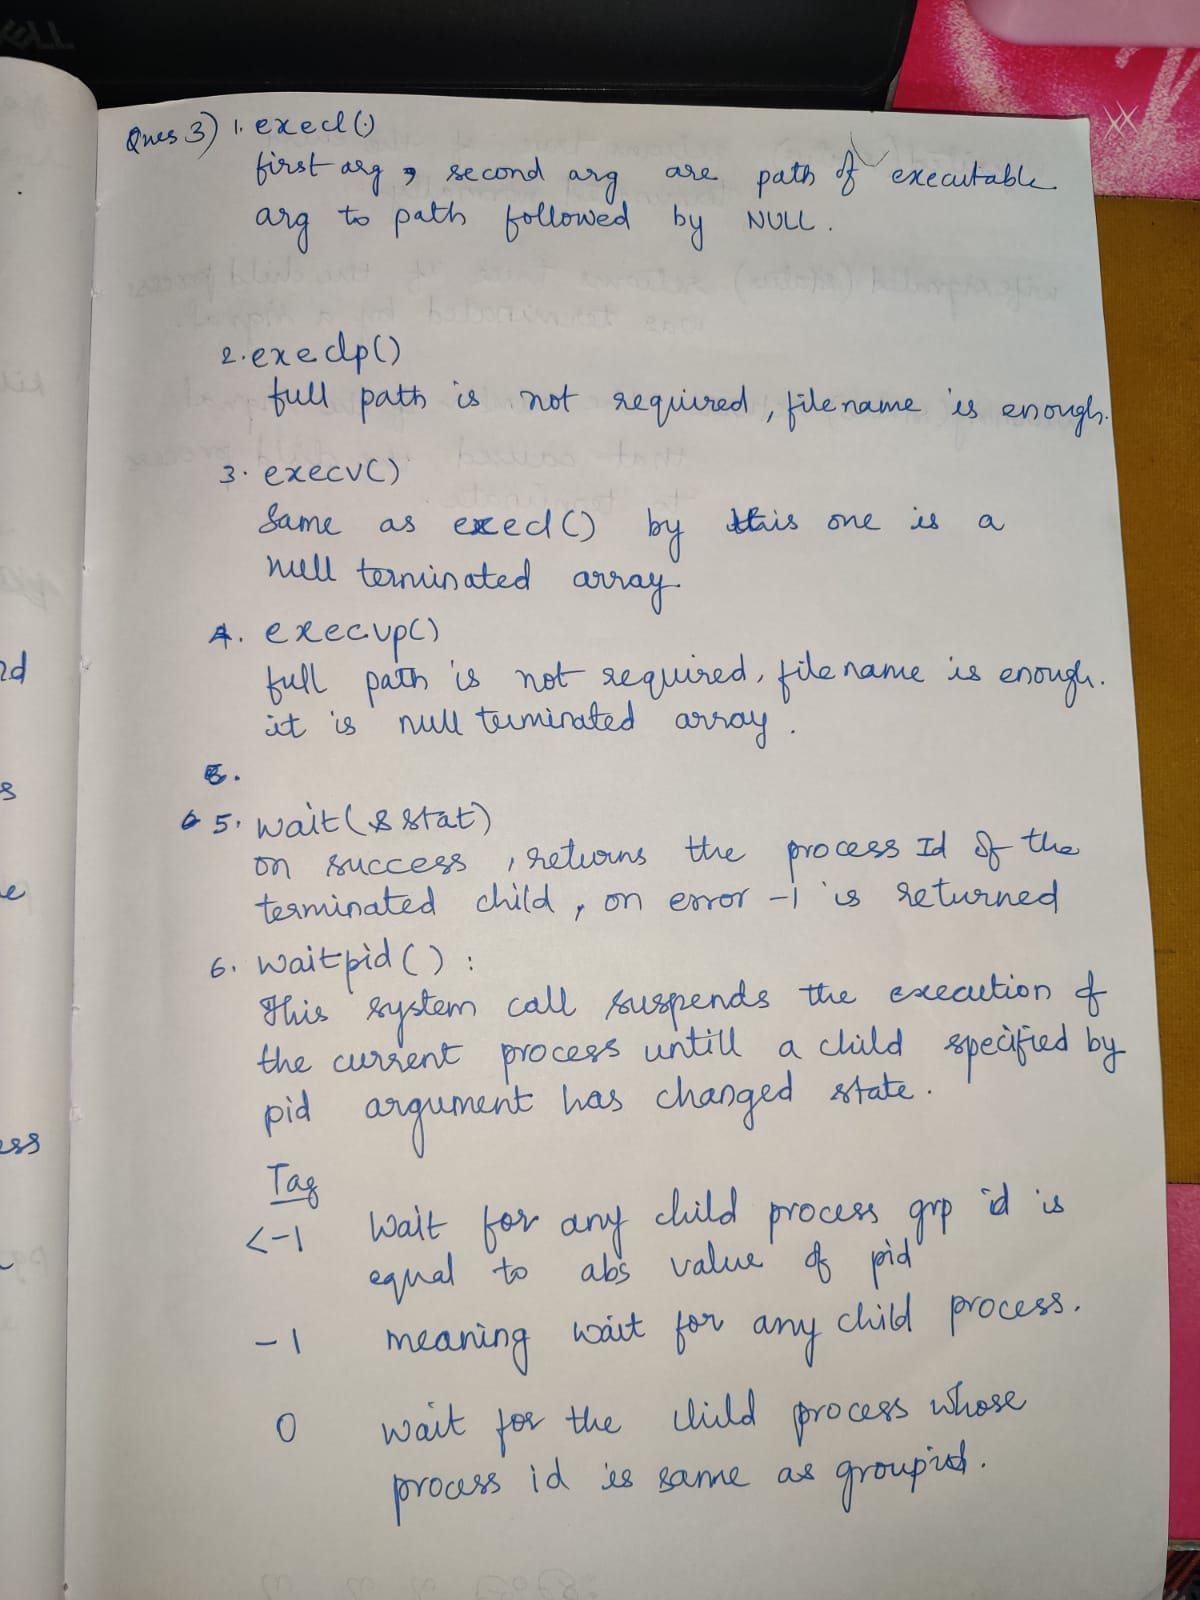 ELL
Ques 3) 1. execl()
first arg, second arg are path of executable
arg to path followed by NULL.
2. execlp()
full path is not required, filename is enough.
3. execv()
Same as execl() by this one is a
null terminated array.
4. execvp()
full path is not required, filename is enough.
it is null terminated array.
5. wait(&stat)
on success, returns the process Id of the
terminated child, on error -1 is returned
6. waitpid():
This system call suspends the execution of
the current process untill a child specified by
pid argument has changed state.
Tag
<-1 Wait for any child process grp id is
equal to abs value of pid
-1 meaning wait for any child process.
0 wait for the child process whose
process id is same as groupid.